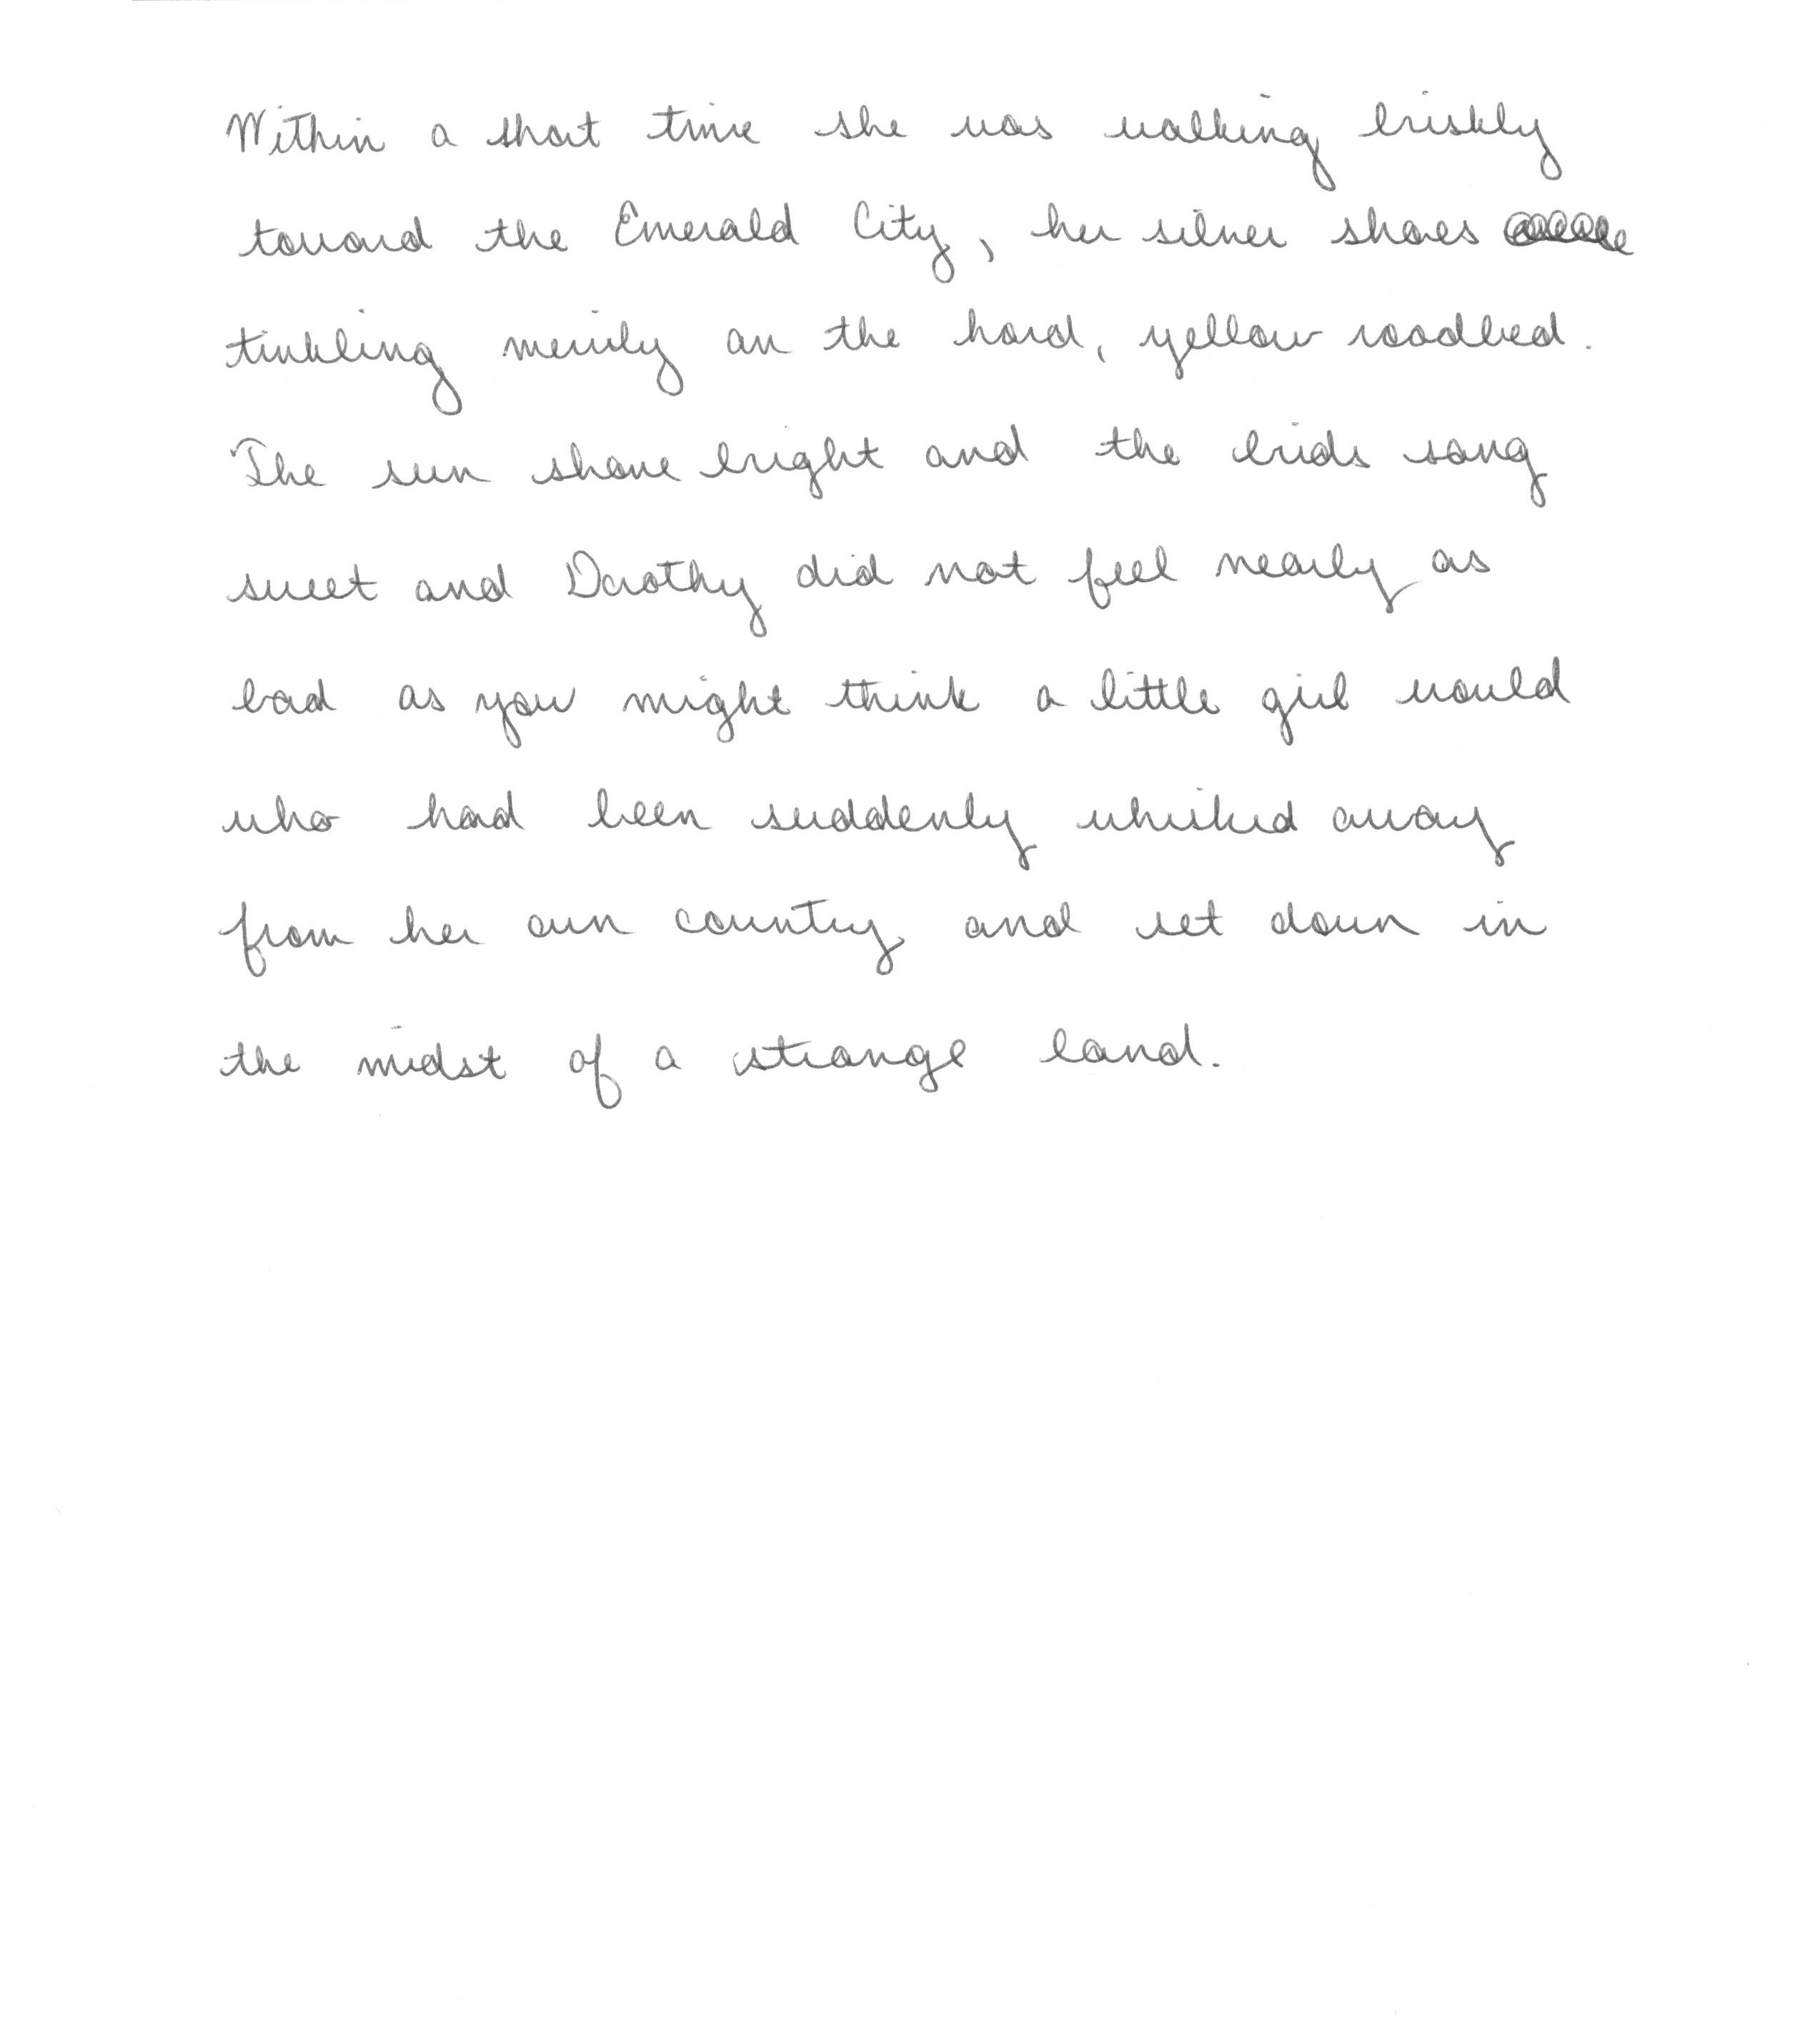 Within a short time she was walking briskly
toward the Emerald City, her silver shoes
tinkling merrily on the hard, yellow roadbed.
The sun shone bright and the birds sang
sweet and Dorothy did not feel nearly as
bad as you might think a little girl would
who had been suddenly whisked away
from her own country and set down in
the midst of a strange land.